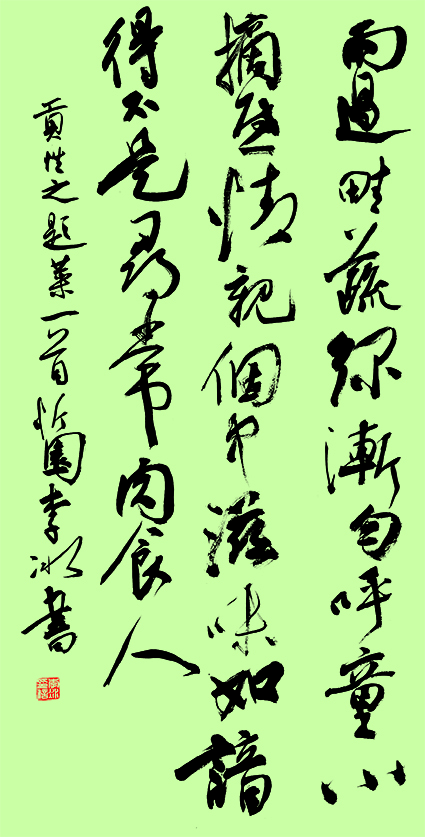 雨過畦蔬緑漸匀呼童小
摘爲情親個中滋味如諳
得不是尋常肉食人
貢性之題菜一首忻園李冰書